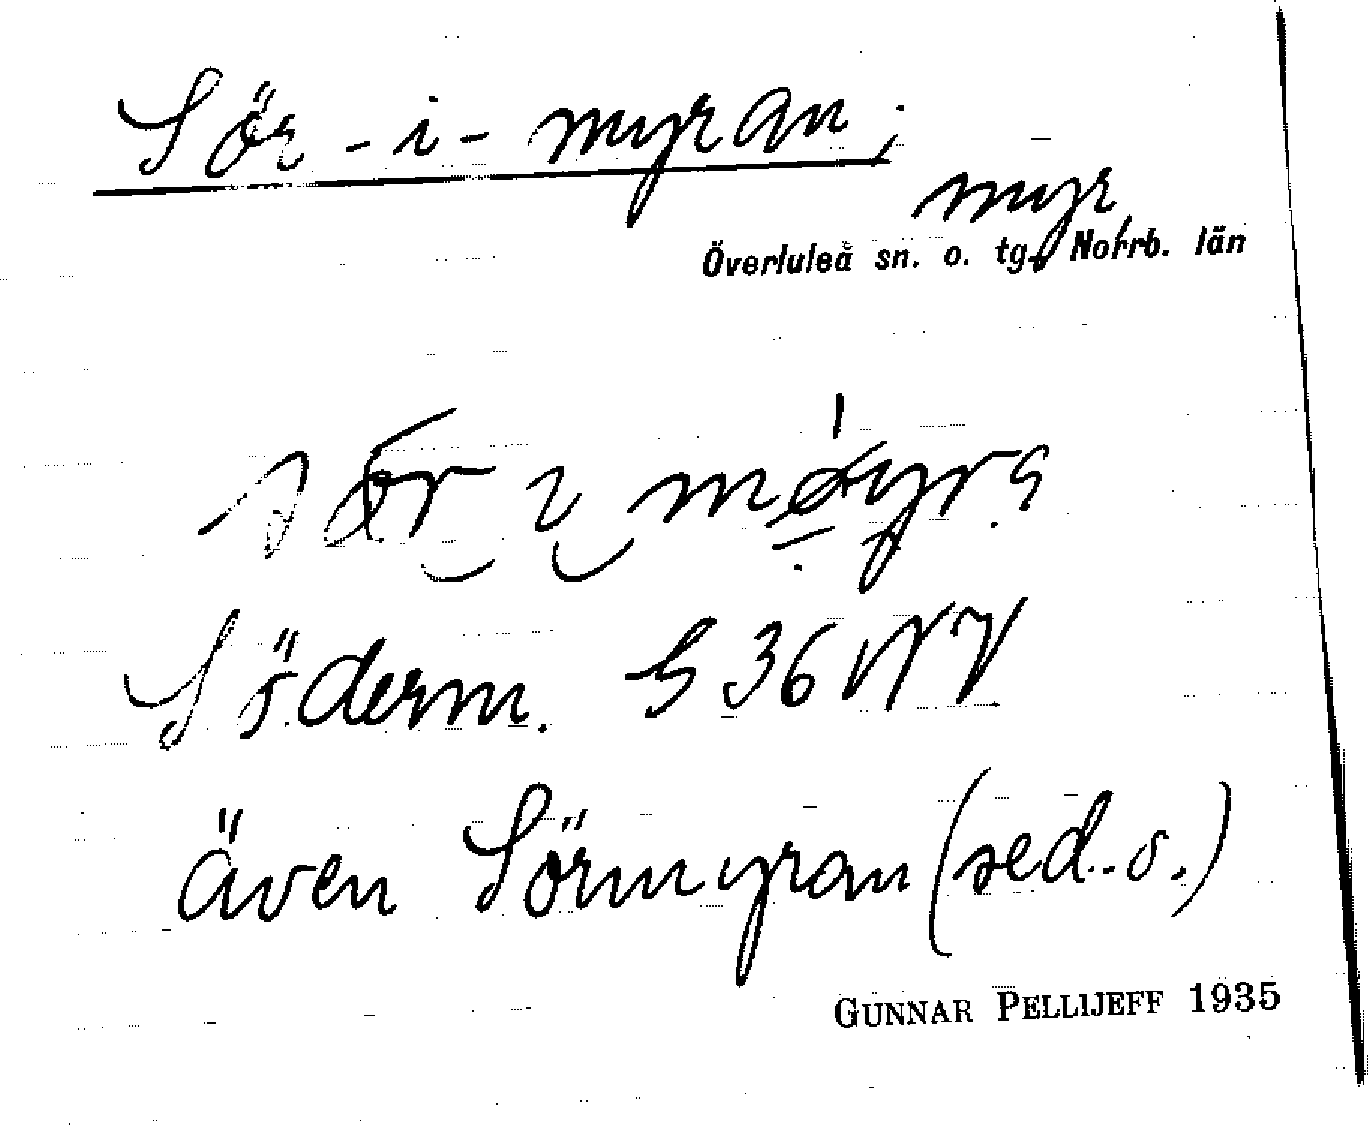 Sör-i-myran;
myr
Överluleå sn. o. tg., Norrb. län
Söderm. S 36 NV
även Sörmyran (sed. o.)
GUNNAR PELLIJEFF 1935